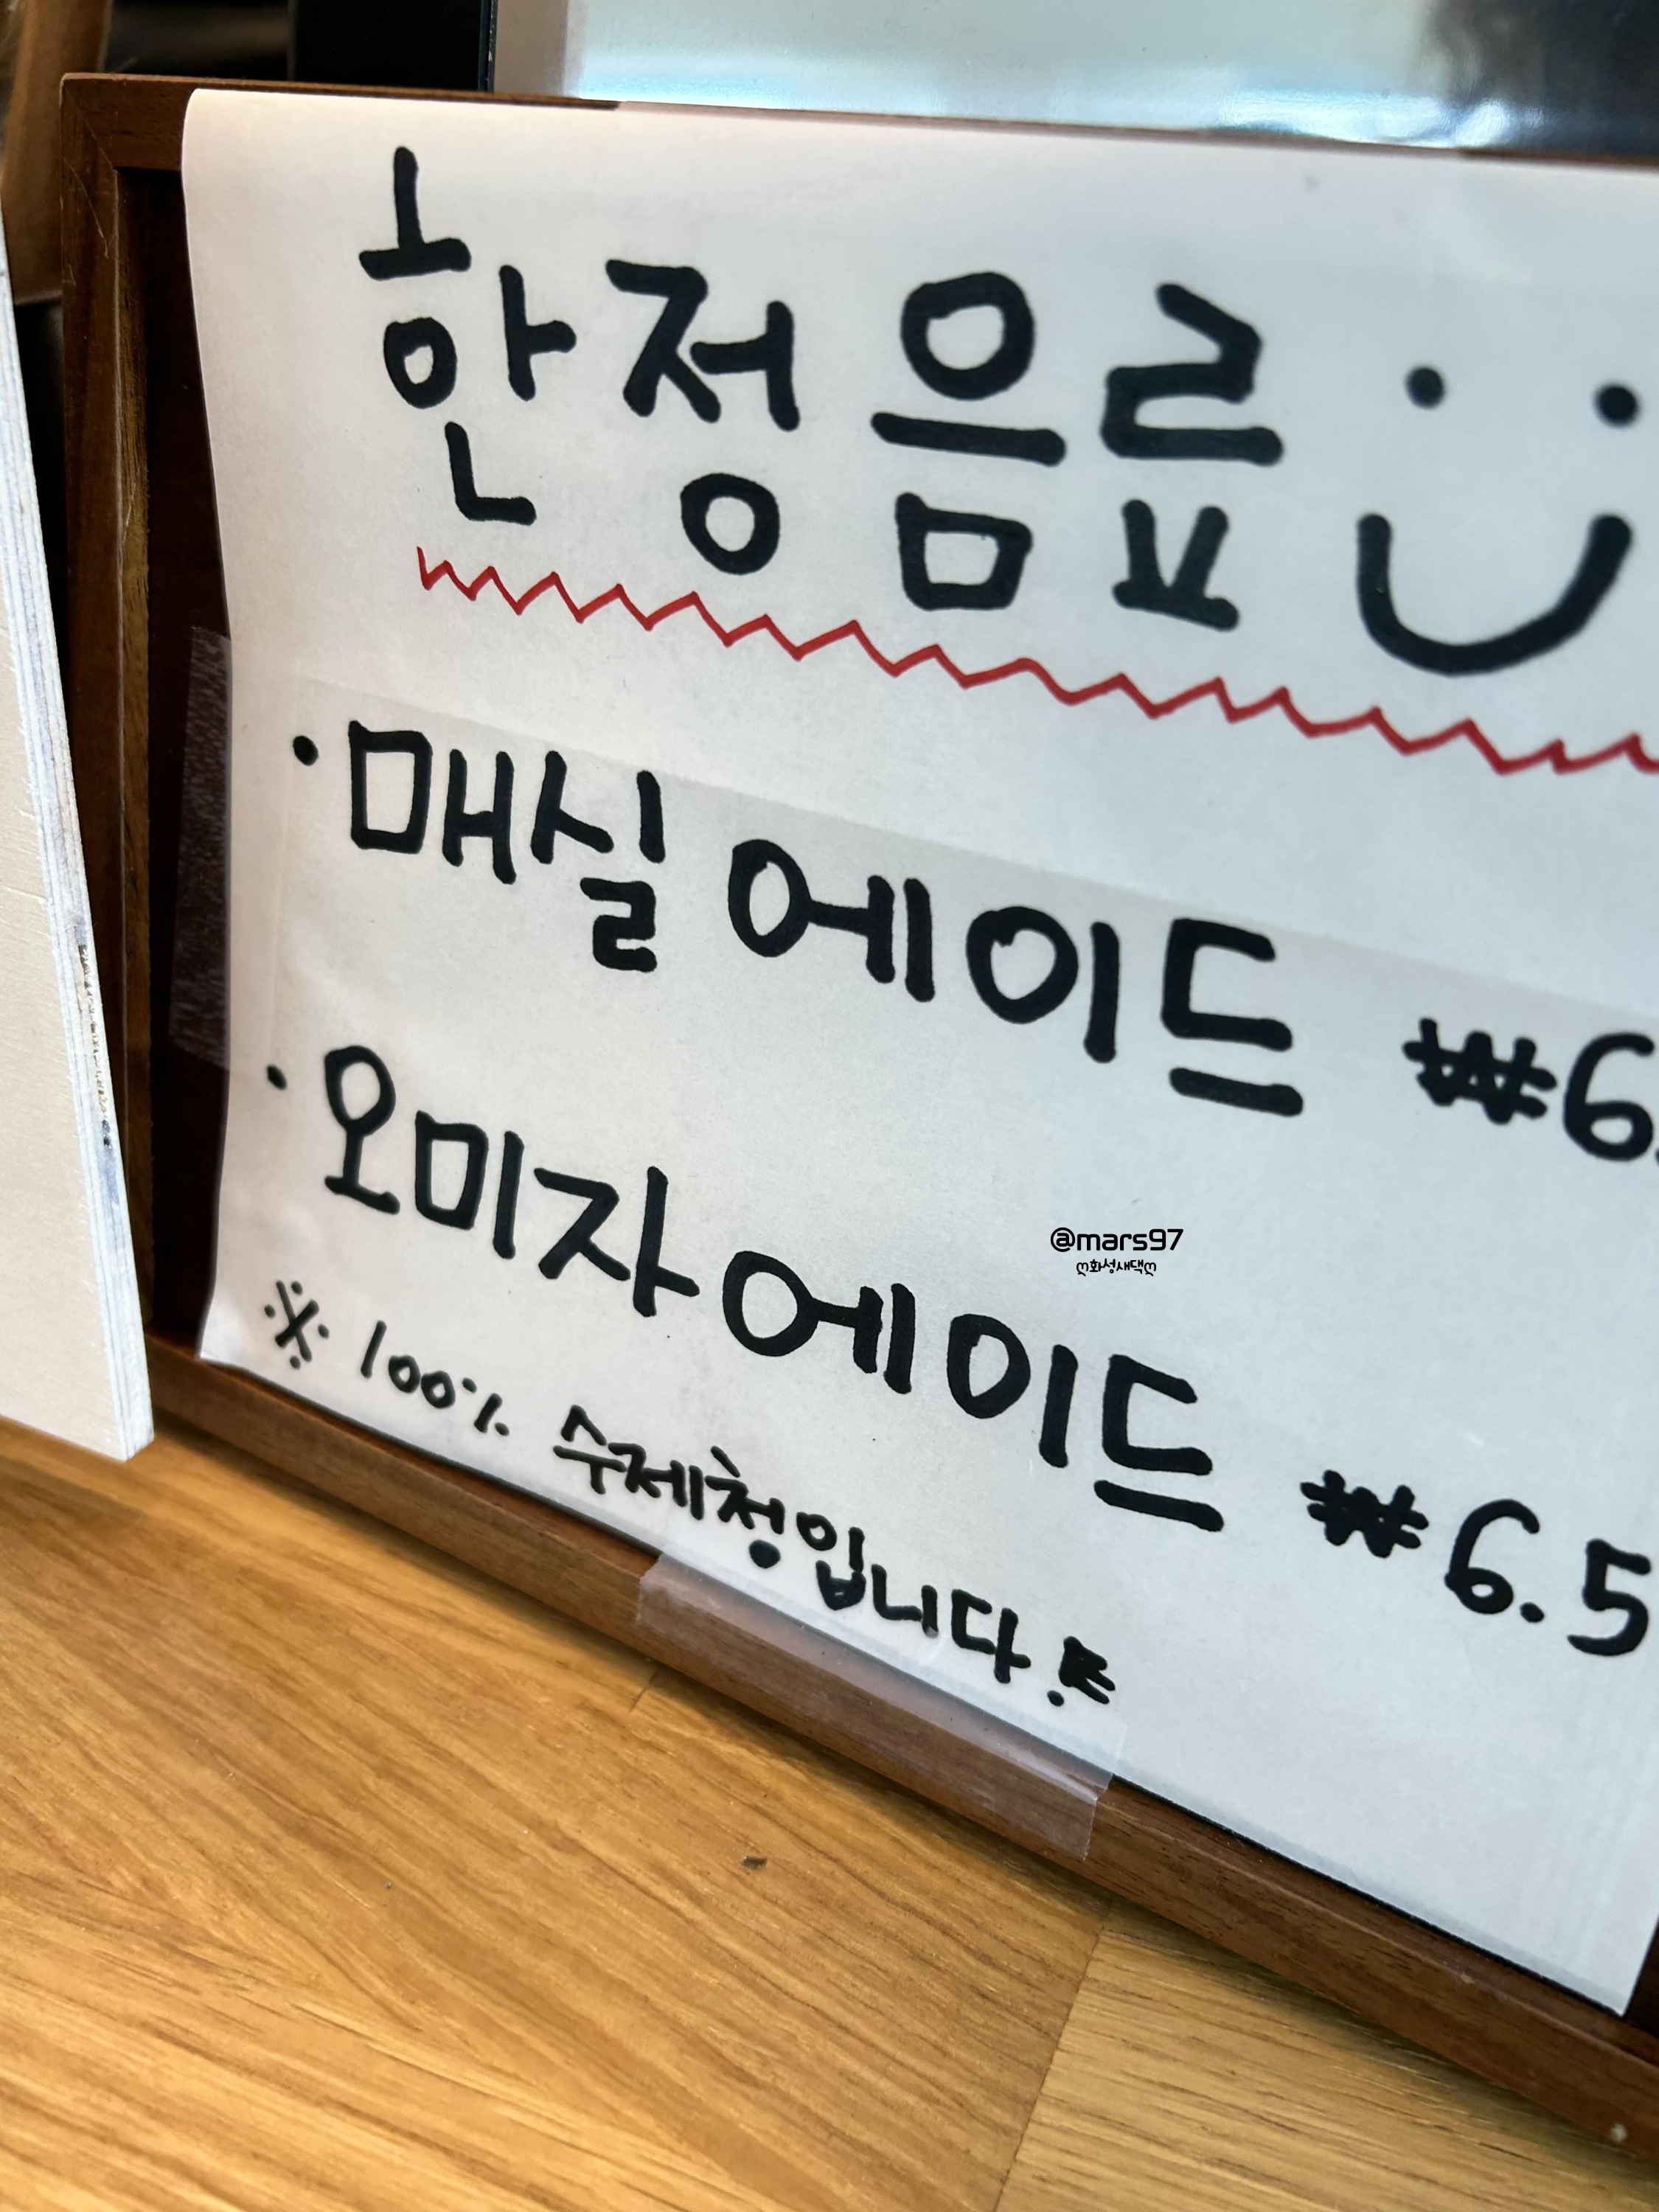 한정음료
· 매실에이드 ₩6.
· 오미자에이드 ₩6.5
@mars97
ღ화성새댁ღ
※ 100% 수제청입니다.